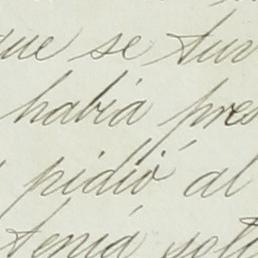 que se tuv
había pres
pidió al
tenía solo